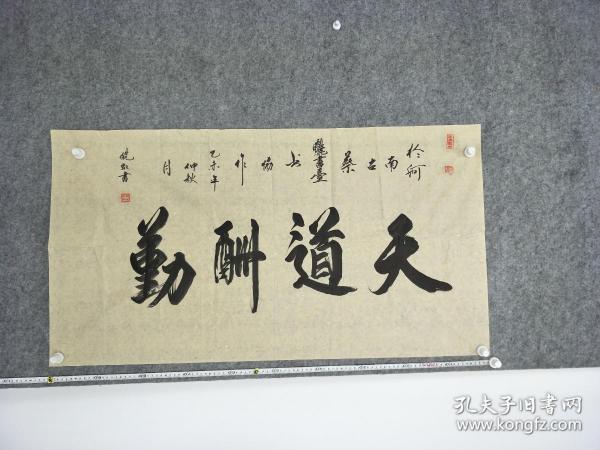 天道酬勤
於河
南古
桑
书
协
作
乙未年
仲秋
月
晓红书
孔夫子旧书网
www.kongfz.com